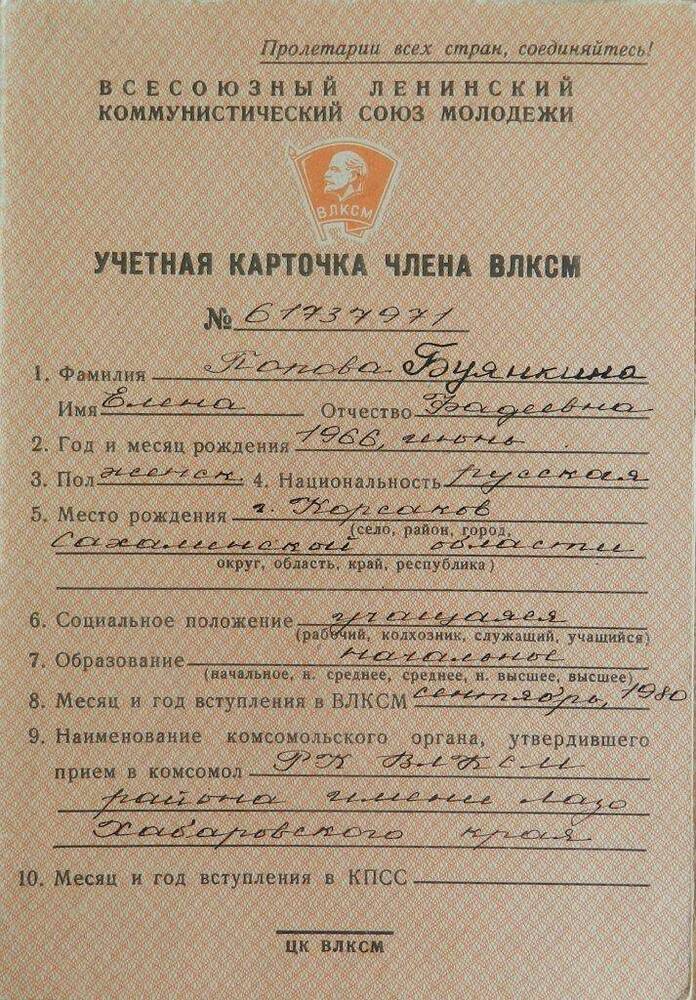 Пролетарии всех стран, соединяйтесь!
ВСЕСОЮЗНЫЙ ЛЕНИНСКИЙ
КОММУНИСТИЧЕСКИЙ СОЮЗ МОЛОДЕЖИ
ВЛКСМ
УЧЕТНАЯ КАРТОЧКА ЧЛЕНА ВЛКСМ
№ 61737971
1. Фамилия Попова Буянкина
Имя Елена Отчество Фадеевна
2. Год и месяц рождения 1966, июнь
3. Пол женск. 4. Национальность русская
5. Место рождения г. Корсаков
(село, район, город,
Сахалинской области
округ, область, край, республика)
6. Социальное положение учащаяся
(рабочий, колхозник, служащий, учащийся)
7. Образование начальное
(начальное, н. среднее, среднее, н. высшее, высшее)
8. Месяц и год вступления в ВЛКСМ сентябрь, 1980
9. Наименование комсомольского органа, утвердившего
прием в комсомол РК ВЛКСМ
района имени Лазо
Хабаровского края
10. Месяц и год вступления в КПСС
ЦК ВЛКСМ